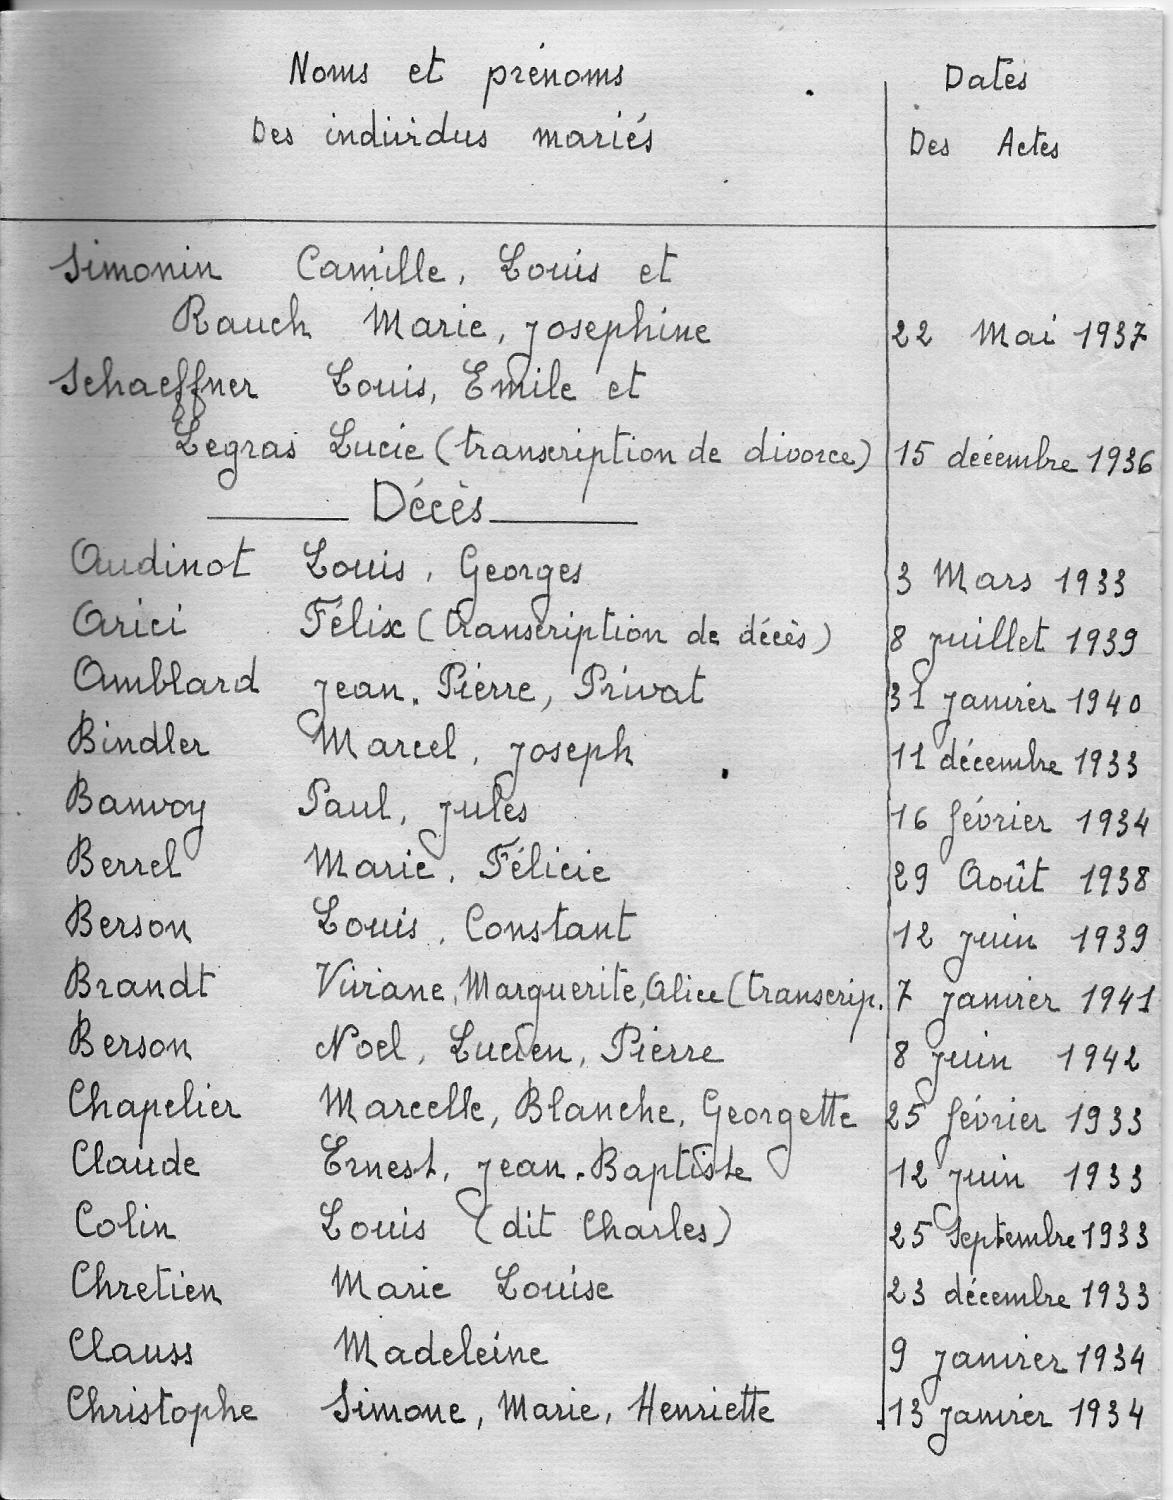 Noms et prénoms Dates
Des individus mariés Des Actes
Simonin Camille, Louis et
Rauch Marie, Josephine 22 Mai 1937
Schaeffner Louis, Emile et
Legras Lucie (transcription de divorce) 15 décembre 1936
Décès
Audinot Louis, Georges 3 Mars 1933
Arici Félix (transcription de décès) 8 juillet 1939
Amblard Jean, Pierre, Privat 31 janvier 1940
Bindler Marcel, Joseph 11 décembre 1933
Banvoy Paul, Jules 16 février 1934
Berrel Marie, Félicie 29 Août 1938
Berson Louis, Constant 12 juin 1939
Brandt Viviane, Marguerite, Alice (transcrip. 7 janvier 1941
Berson Noel, Lucien, Pierre 8 juin 1942
Chapelier Marcelle, Blanche, Georgette 25 février 1933
Claude Ernest, Jean-Baptiste 12 juin 1933
Colin Louis (dit Charles) 25 Septembre 1933
Chretien Marie Louise 23 décembre 1933
Clauss Madeleine 9 janvier 1934
Christophe Simone, Marie, Henriette 13 janvier 1934